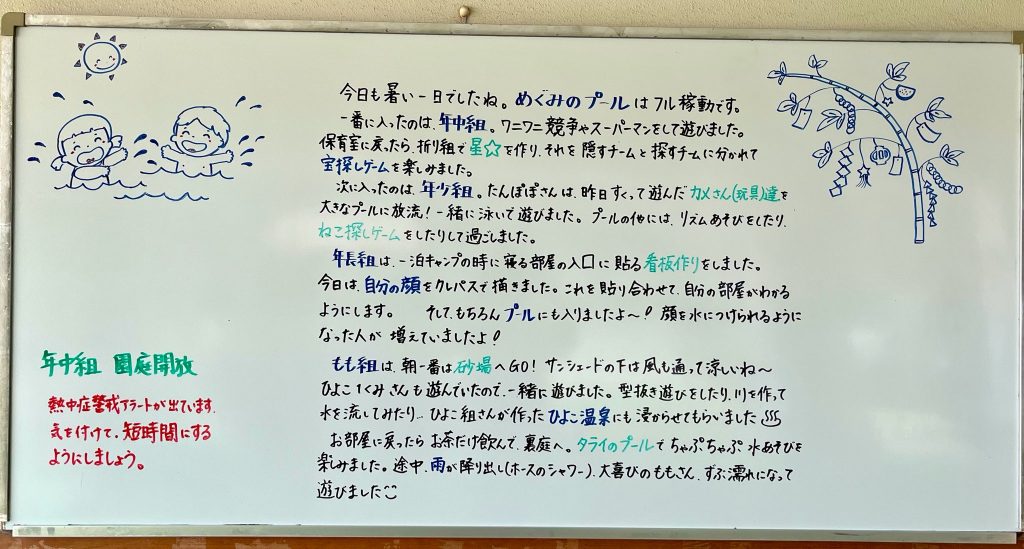 今日も暑い一日でしたね。めぐみのプールはフル稼動です。
一番に入ったのは、年中組。ワニワニ競争やスーパーマンをして遊びました。
保育室に戻ったら、折り紙で星☆を作り、それを隠すチームと探すチームに分かれて
宝探しゲームを楽しみました。
次に入ったのは、年少組。たんぽぽさんは、昨日すくって遊んだカメさん(玩具)達を
大きなプールに放流！一緒に泳いで遊びました。プールの他には、リズムあそびをしたり、
ねこ探しゲームをしたりして過ごしました。
年長組は、一泊キャンプの時に寝る部屋の入口に貼る看板作りをしました。
今日は、自分の顔をクレパスで描きました。これを貼り合わせて、自分の部屋がわかる
ようにします。 そして、もちろんプールにも入りましたよ〜！顔を水につけられるように
なった人が増えていましたよ！
もも組は、朝一番は砂場へGO！サンシェードの下は風も通って涼しいね〜
ひよこ1くみさんも遊んでいたので、一緒に遊びました。型抜き遊びをしたり、川を作って
水を流してみたり…ひよこ組さんが作ったひよこ温泉にも浸からせてもらいました♨
お部屋に戻ったらお茶だけ飲んで、裏庭へ。タライのプールでちゃぷちゃぷ水あそびを
楽しみました。途中、雨が降り出し(ホースのシャワー)、大喜びのももさん、ずぶ濡れになって
遊びました☺
年中組 園庭開放
熱中症警戒アラートが出ています。
気を付けて、短時間にする
ようにしましょう。